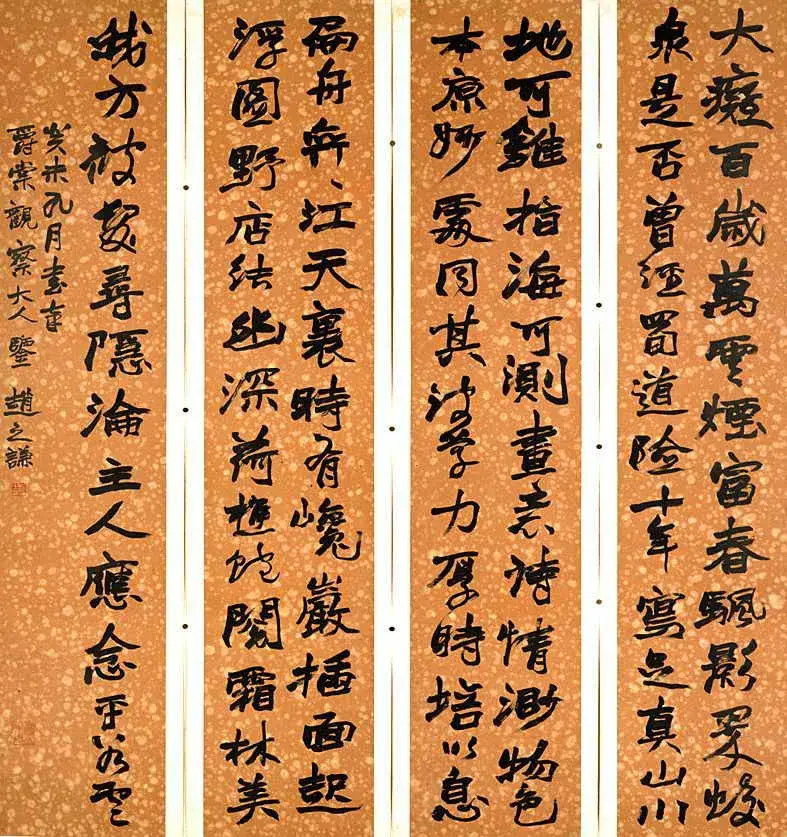 大癡百歲萬雲煙富春颿影蛟
泉是否曾經蜀道險十年寫足真山川
地可指海可測畫意詩情渺物色
本原妙處同其波學力厚時培以息
扁舟奔江天裏時有巉巖插面起
浮圖野店結幽深荷樵閣霜林美
我方被髮尋隱淪主人應念平雲
癸未九月書奉
爵棠觀察大人鑒 趙之謙